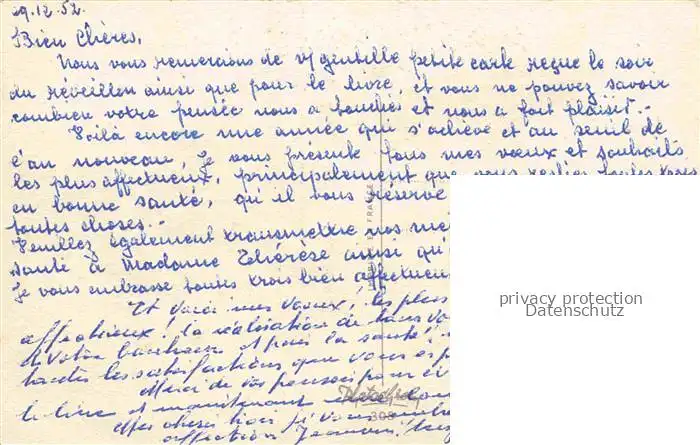 29.12.52.
Bien Chères,
Nous vous remercions de v/ gentille petite carte reçue le soir
du réveillon ainsi que pour le livre, et vous ne pouvez savoir
combien votre pensée nous a touchés et nous a fait plaisir.-
Voilà encore une année qui s'achève et au seuil de
l'an nouveau, je vous présente tous mes vœux et souhaits
les plus affectueux, principalement que vous restiez toutes trois
en bonne santé, qu'il vous réserve
toutes choses.-
Veuillez également transmettre nos me
santé à Madame Thérèse ainsi qu'
Je vous embrasse toutes trois bien affectueu
Et voici mes vœux! les plus
affectueux! la réalisation de tous vo
et votre bonheur et puis la santé!
toutes les satisfactions que vous esp
Merci de vos pensées pour
le livre et maintenant
Mes chères trois je vous
affection
FRANCE
308
privacy protection
Datenschutz